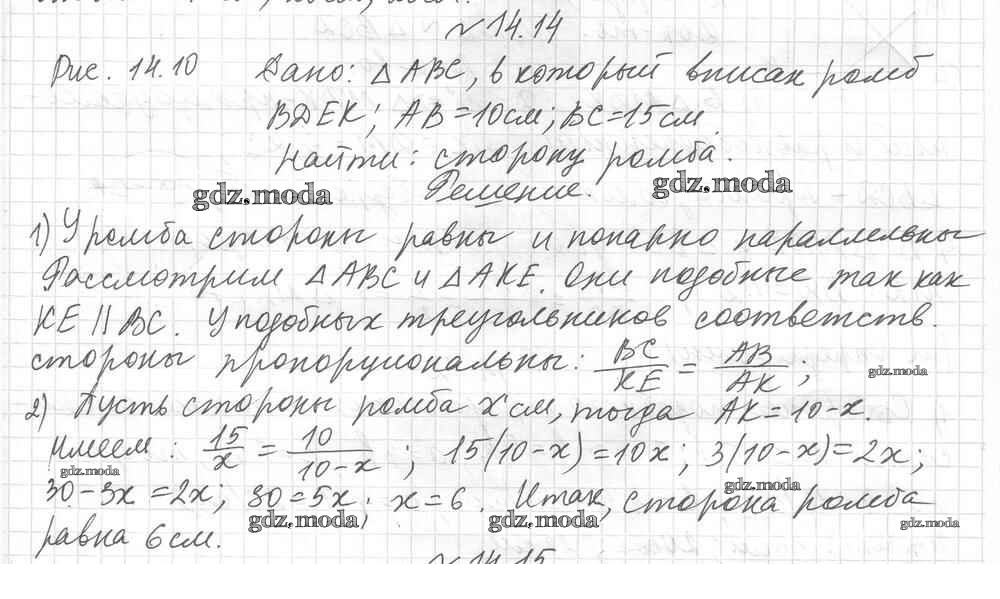 № 14.14
Рис. 14.10 Дано: △ABC, в который вписан ромб
BДEK; AB=10см; BC=15см.
Найти: сторону ромба.
gdz.moda Решение. gdz.moda
1) У ромба стороны равны и попарно параллельны
Рассмотрим △ABC и △AKE. Они подобные так как
KE || BC. У подобных треугольников соответств.
стороны пропорциональны: BC/KE = AB/AK; gdz.moda
2) Пусть стороны ромба x см, тогда AK=10-x.
Имеем: 15/x = 10/(10-x); 15(10-x)=10x; 3(10-x)=2x;
gdz.moda gdz.moda
30-3x=2x; 30=5x; x=6. Итак, сторона ромба
gdz.moda gdz.moda gdz.moda
равна 6 см.
№ 14.15